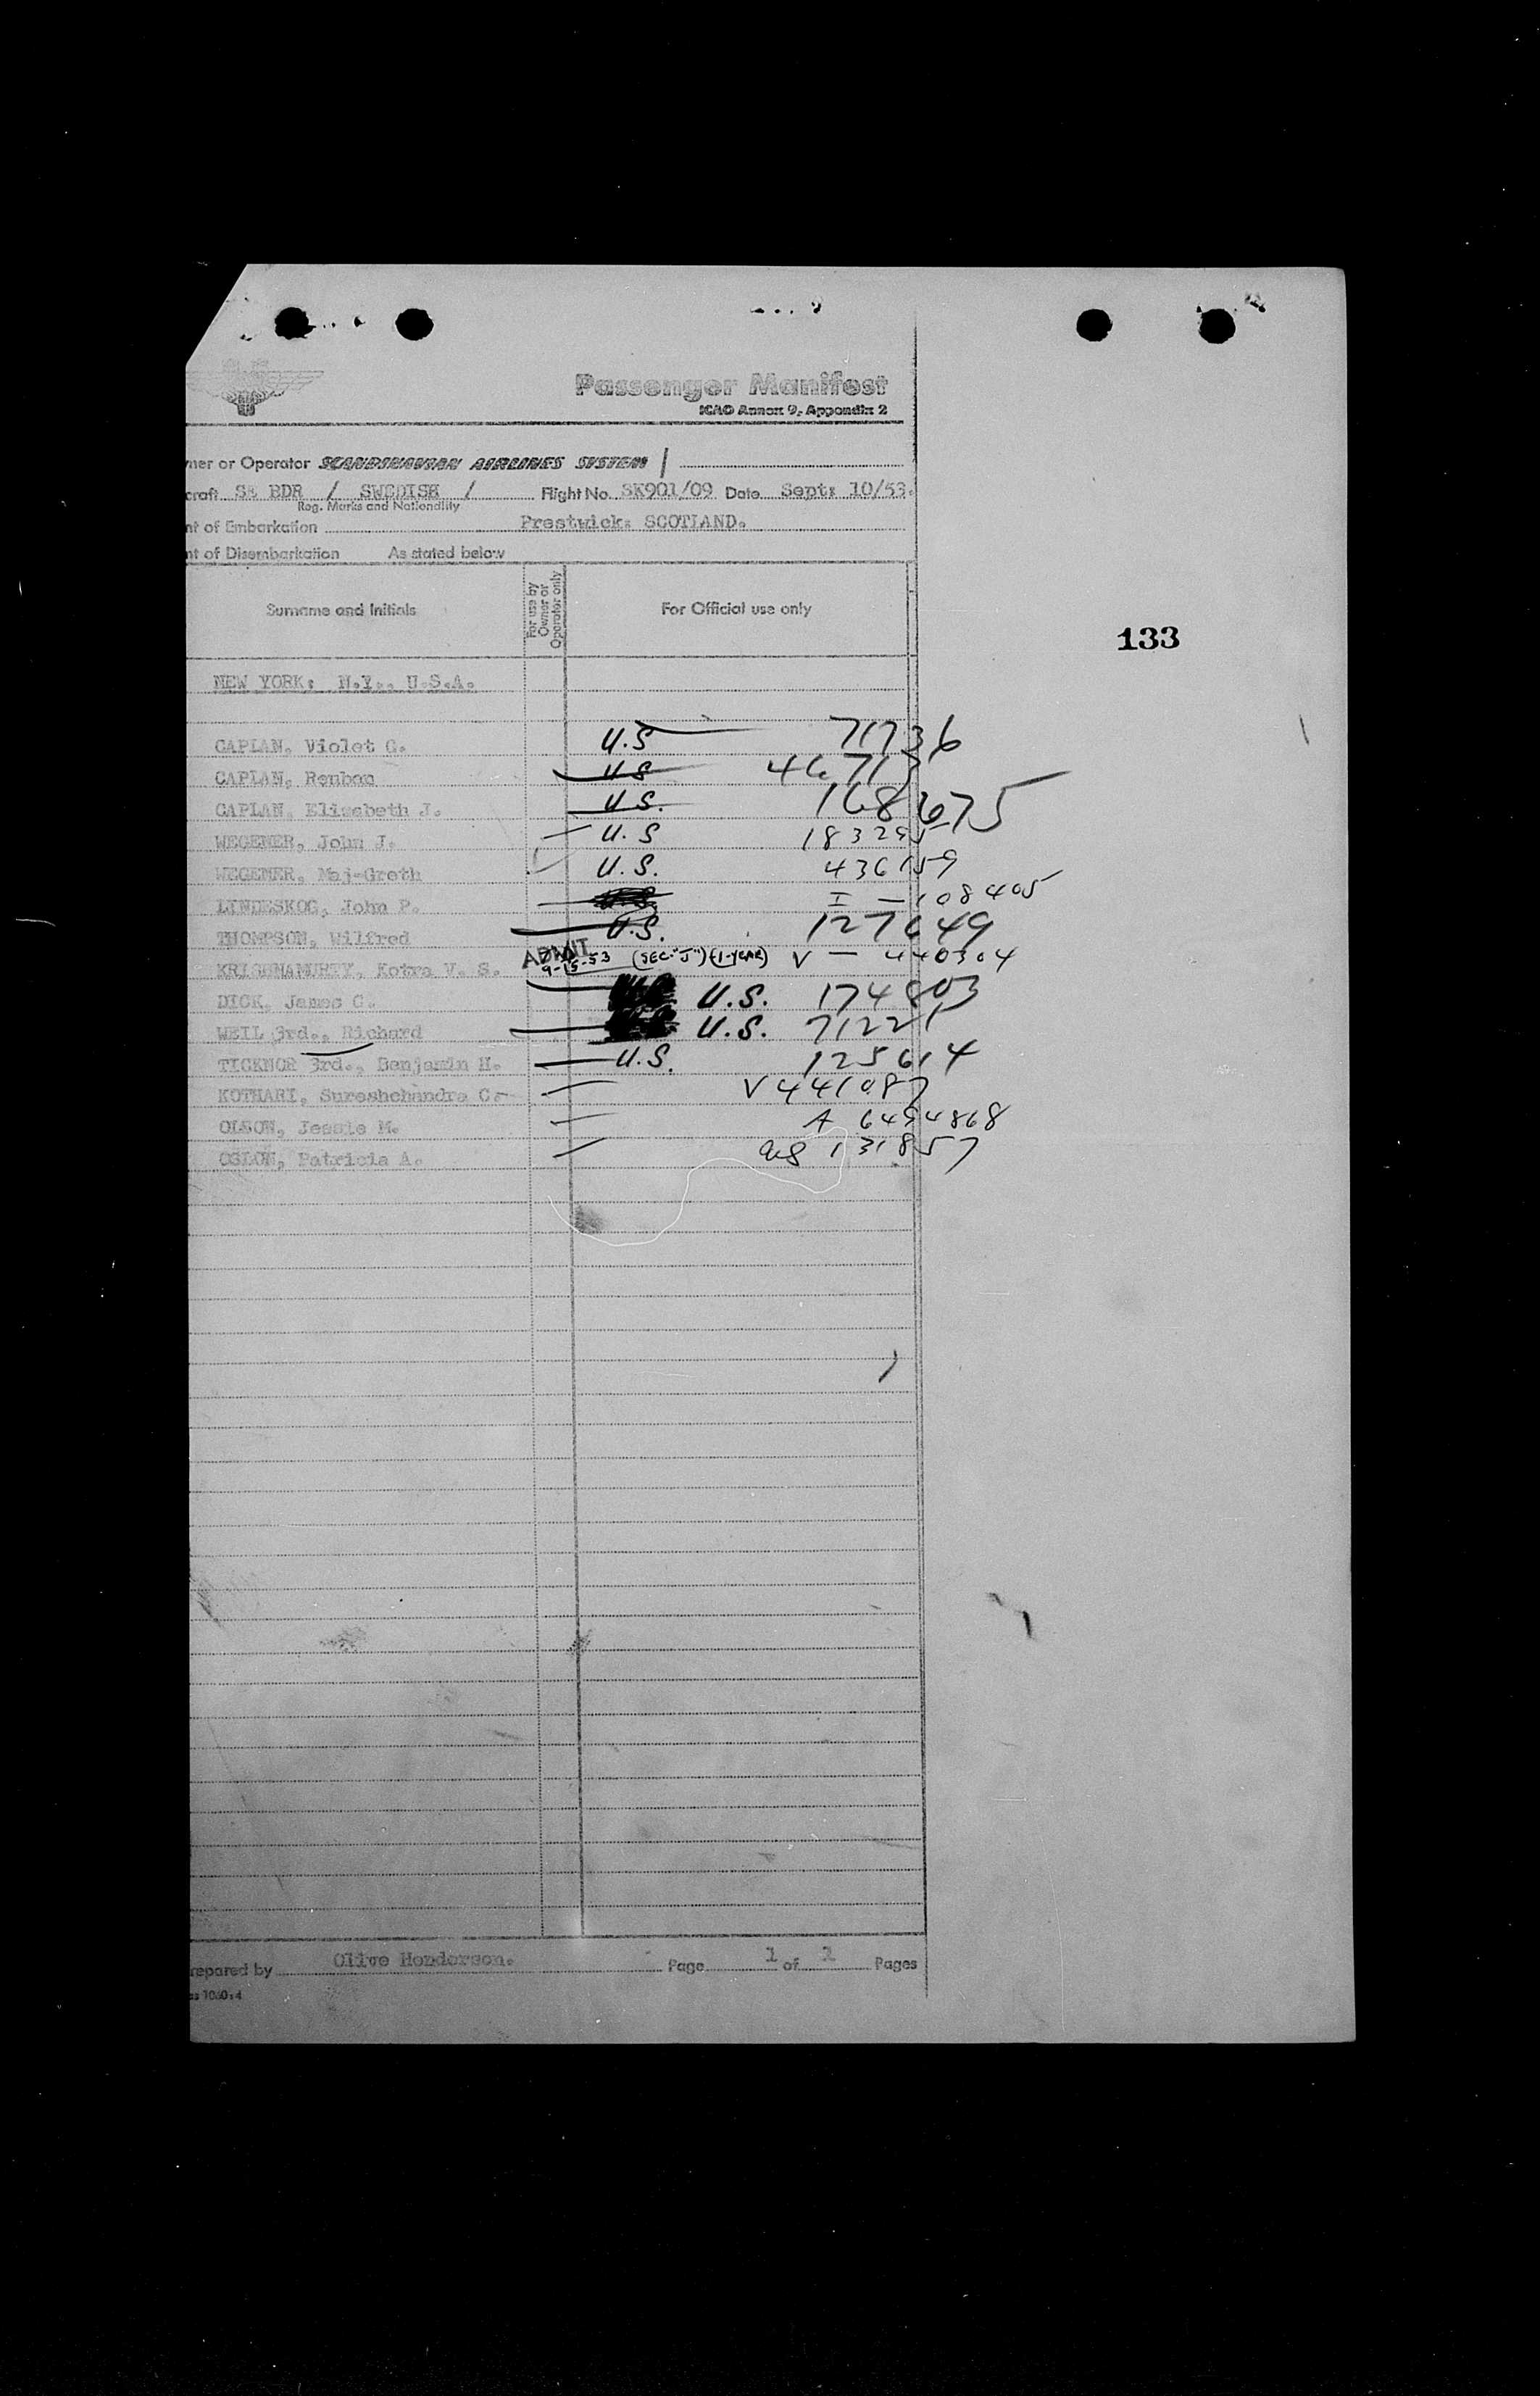 Passenger Manifest
ICAO Annex 9, Appendix 2
ner or Operator SCANDINAVIAN AIRLINES SYSTEM
craft SE BDR / SWEDISH / Flight No. SK901/09 Date Sept: 10/53.
Reg. Marks and Nationality
nt of Embarkation Prestwick: SCOTLAND.
nt of Disembarkation As stated below
Surname and Initials For use by Owner or Operator only For Official use only
133
NEW YORK: N.Y., U.S.A.
CAPLAN, Violet G. U.S 71736
CAPLAN, Reuben US 46713
CAPLAN, Elizabeth J. U.S. 168675
WEGENER, John J. U.S 183295
WEGENER, Maj-Greth U.S. 436159
LINDESKOG, John P. I - 108405
THOMPSON, Wilfred U.S. 127649
KRISHNAMURTY, Kotra V. S. ADMIT 9-15-53 (SEC."J") (1-YEAR) V - 440304
DICK, James C. U.S. 174803
WEIL 3rd., Richard U.S. 71221
TICKNOR 3rd., Benjamin H. U.S. 125614
KOTHARI, Sureshchandra C. V441087
OLSON, Jessie M. A 6494868
OSLON, Patricia A. 131857
repared by Olive Henderson. Page 1 of 1 Pages